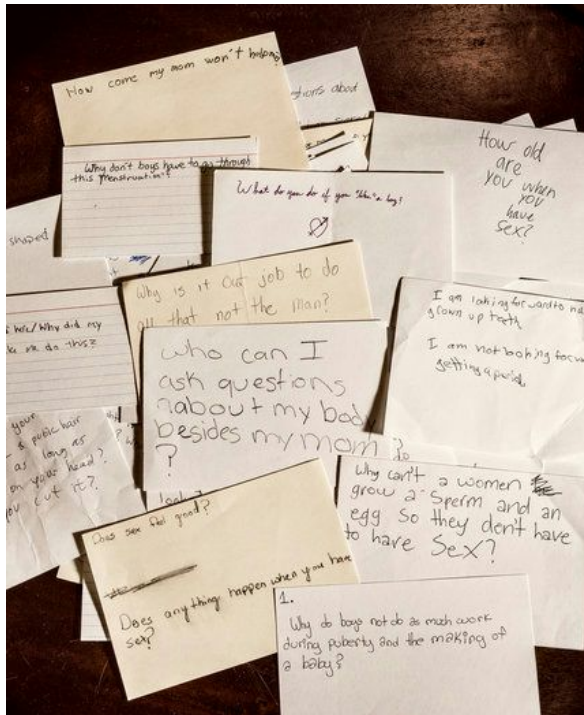 How come my mom won't
stions about
Why don't boys have to go through
this menstruation?
What do you do if you like a boy?
How old
are
you when
you
have
sex?
shaped
Why is it our job to do
all that not the man?
I am looking forward to
grown up teeth
I am not looking forw
getting a period
here/Why did my
me do this?
who can I
ask questions
about my body
besides my mom ?
?
your
pubic hair
as long as
on your head?
you cut it?
Why can't a women
grow a sperm and an
egg so they don't have
to have Sex?
Does sex feel good?
Does anything happen when you have
sex?
1.
Why do boys not do as much work
during puberty and the making of
a baby?